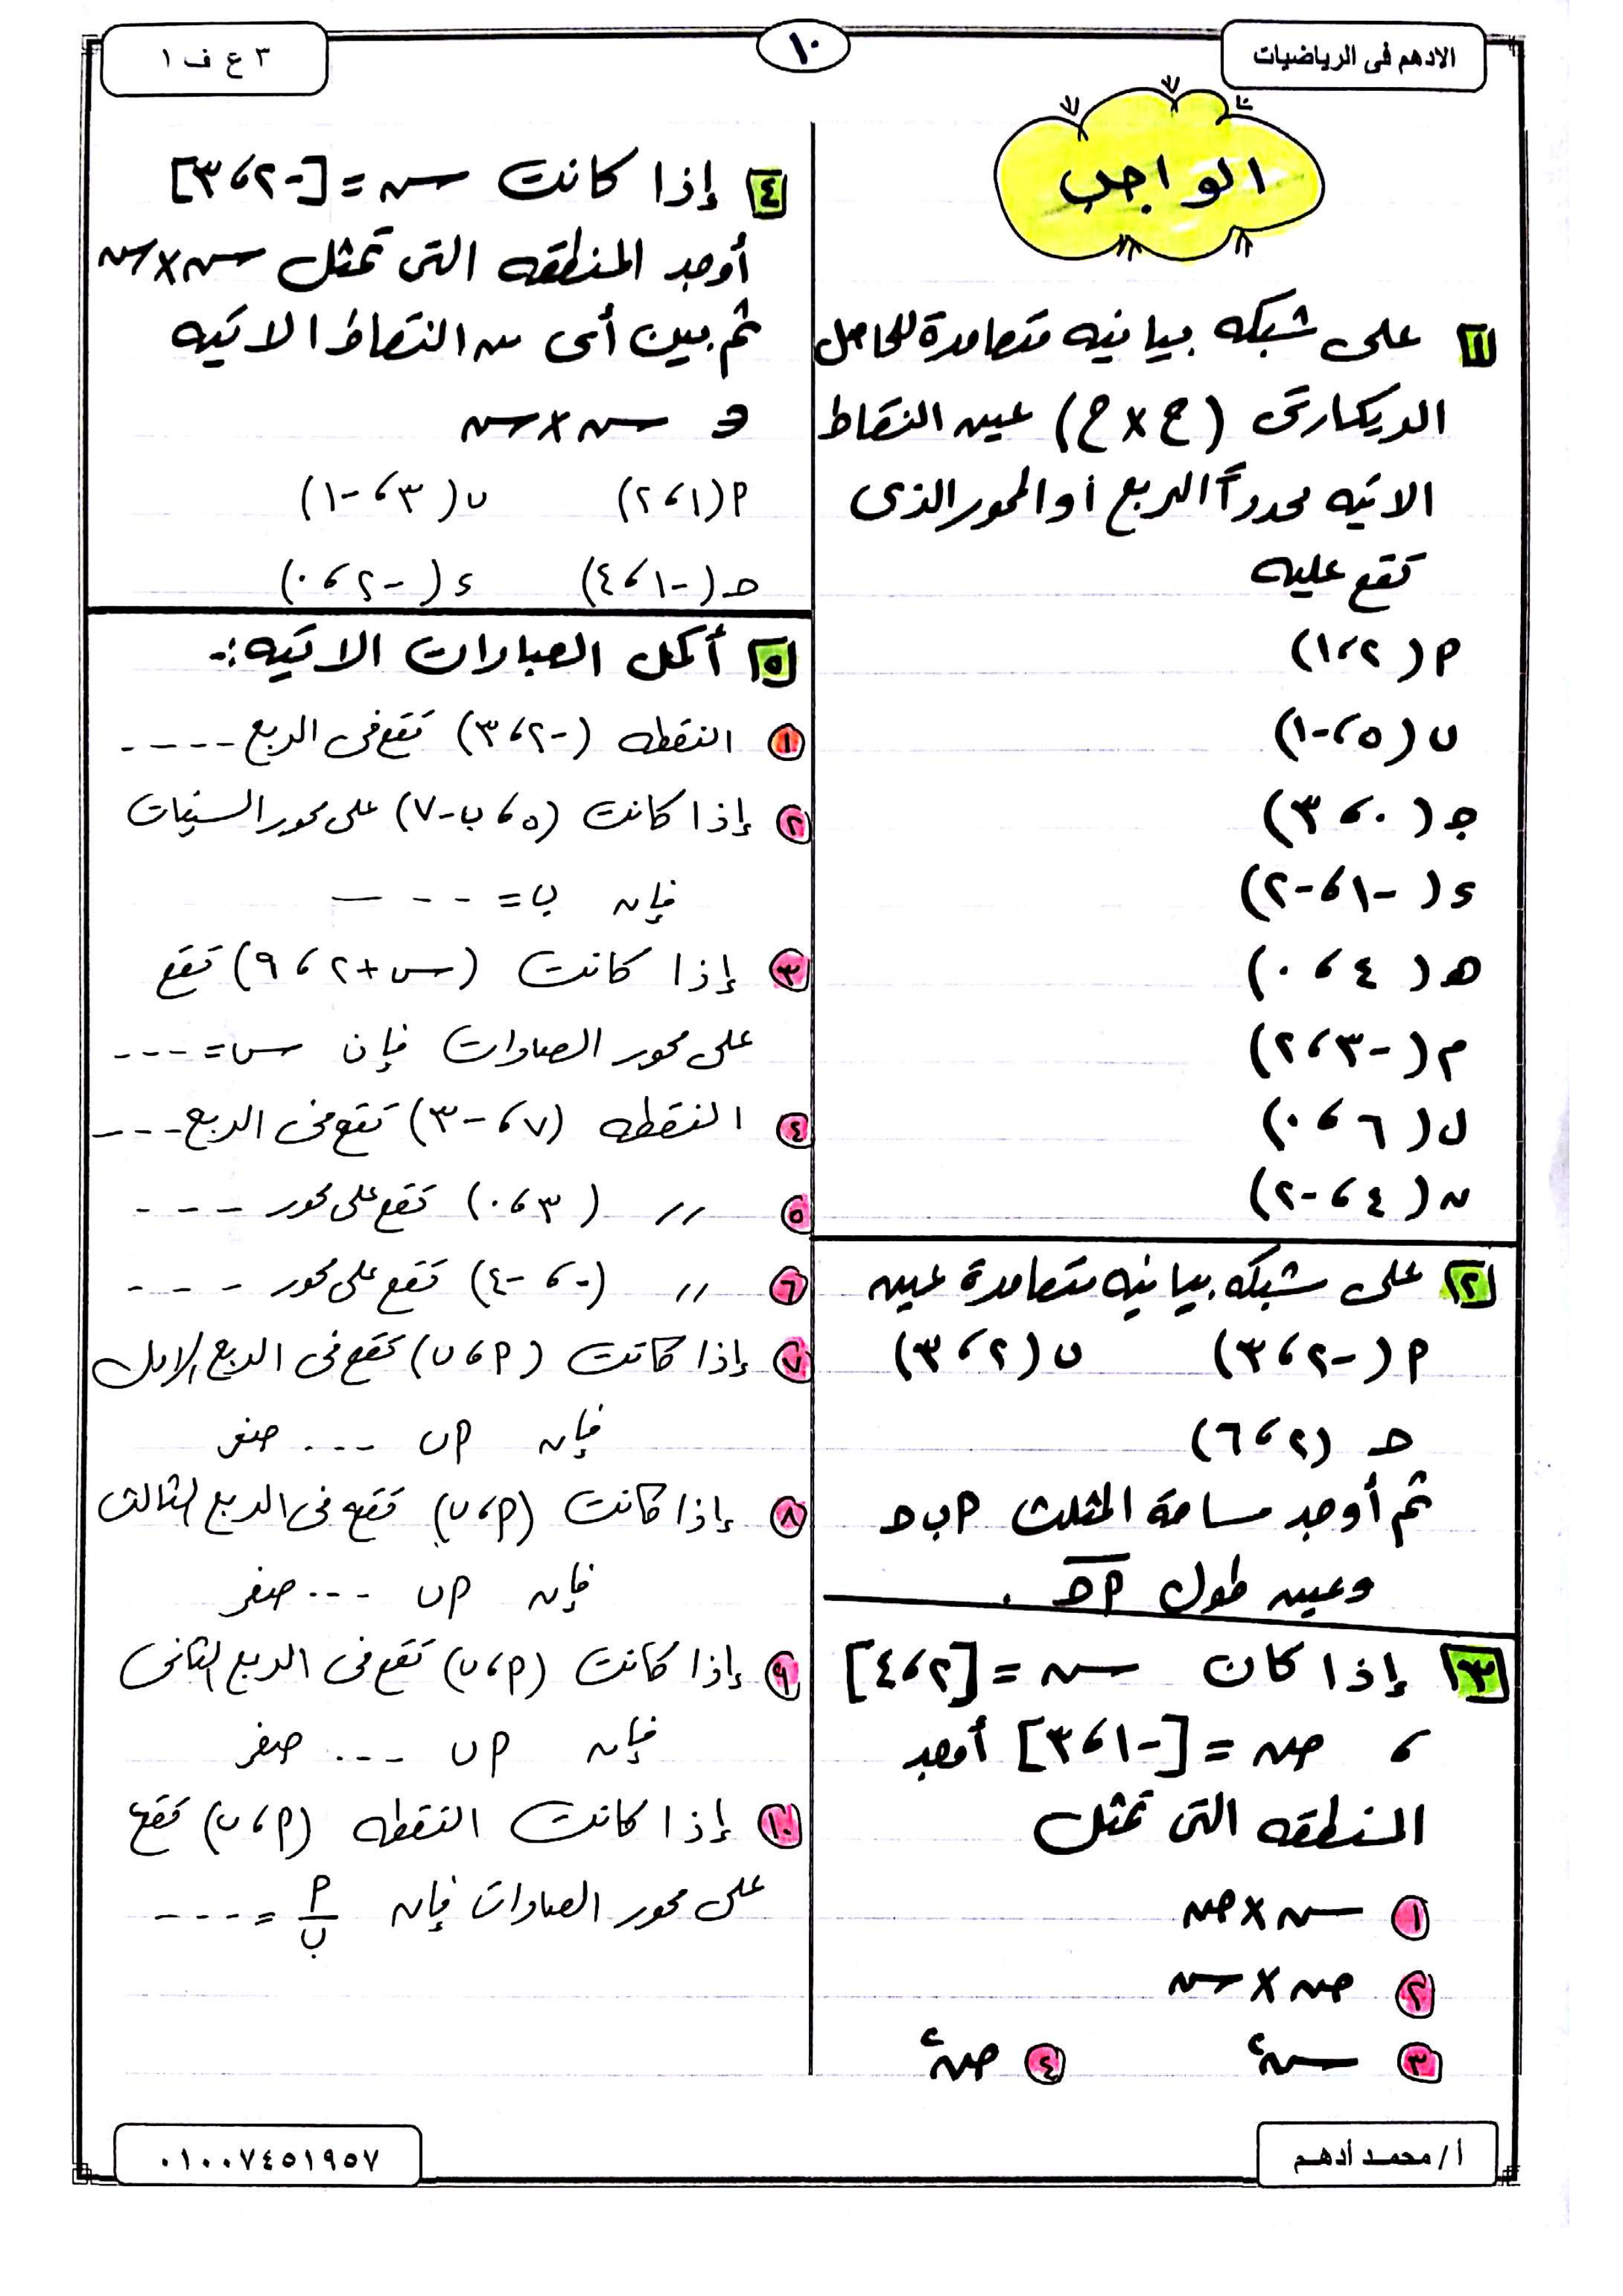 الادهم فى الرياضيات
١٠
٣ ع ف ١
الواجب
١ على شبكه بيانيه متعامدة للحاصل
الديكارتى (ح × ح) عين النقاط
الاتيه محدداً الربع أو المحور الذى
تقع عليه
م (٢، ١)
ب (٥، -١)
جـ (٠، ٣)
ء (-١، -٢)
هـ (٤، ٠)
م (-٣، ٢)
ل (٦، ٠)
ن (٤، -٢)
٢ على شبكه بيانيه متعامدة عين
م (-٢، ٣) ب (٢، ٣)
حـ (٢، ٦)
ثم أوجد مساحة المثلث م ب حـ
وعين طول م حـ .
٣ إذا كان س = [٢، ٤]
، ص = [-١، ٣] أوجد
المنطقه التى تمثل
١ س × ص
٢ ص × س
٣ س٢ ٤ ص٢
٤ إذا كانت س = [-٢، ٣]
أوجد المنطقه التى تمثل س × س
ثم بين أى من النقاط الاتيه
∈ س × س
م (١، ٢) ب (٣، -١)
حـ (-١، ٤) ء (-٢، ٠)
٥ أكمل العبارات الاتيه :-
١ النقطه (-٢، ٣) تقع فى الربع ----
٢ إذا كانت (٥، ب-٧) على محور السينات
فإن ب = ----
٣ إذا كانت (س+٢، ٩) تقع
على محور الصادات فإن س = ---
٤ النقطه (٧، -٣) تقع فى الربع ---
٥ // (٣، ٠) تقع على محور ---
٦ // (٠، -٤) تقع على محور ----
٧ إذا كانت (م، ب) تقع فى الربع الاول
فإن م ب --- صفر
٨ إذا كانت (م، ب) تقع فى الربع الثالث
فإن م ب --- صفر
٩ إذا كانت (م، ب) تقع فى الربع الثانى
فإن م ب --- صفر
١٠ إذا كانت النقطه (م، ب) تقع
على محور الصادات فإن م/ب = ----
أ/ محمـد أدهـم
٠١٠٠٧٤٥١٩٥٧